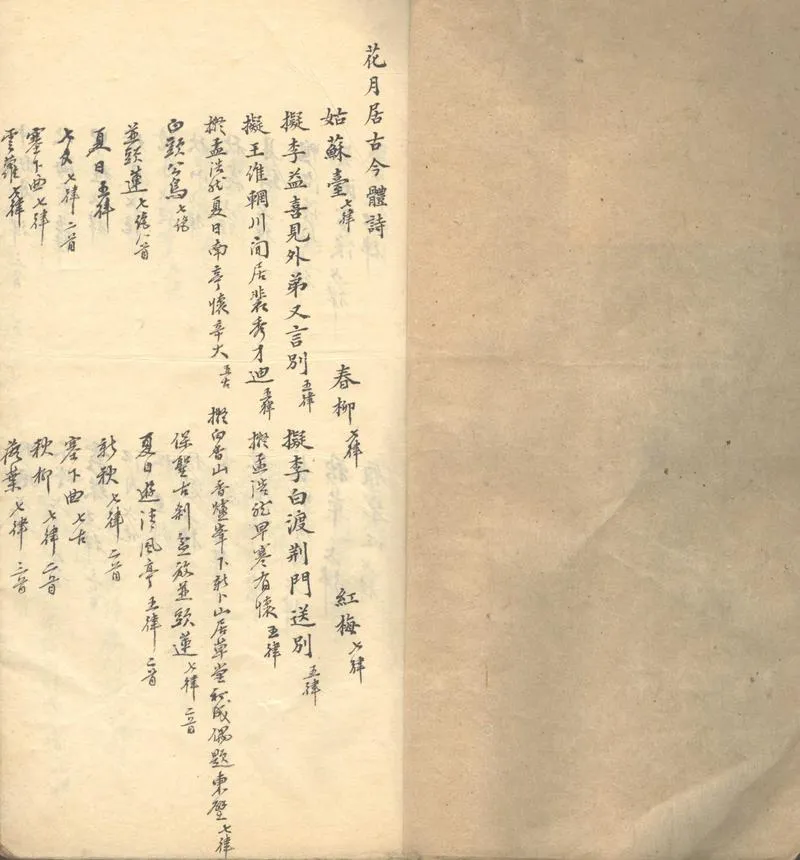 花月居古今體詩
姑蘇臺七律 春柳七律 紅梅七律
擬李益喜見外弟又言別五律 擬李白渡荆門送別五律
擬王維輞川閒居裴秀才迪五律 擬孟浩然早寒有懷五律
擬孟浩然夏日南亭懷辛大五古 擬白香山香爐峯下新卜山居草堂初成偶題東壁七律
白頭公鳥七絕 保聖古刹盆放並頭蓮七律二首
並頭蓮七絕八首 夏日遊清風亭五律二首
夏日五律 新秋七律二首
七夕七律二首 塞下曲七古
塞下曲七律 秋柳七律二首
雲蘿七律 落葉七律二首